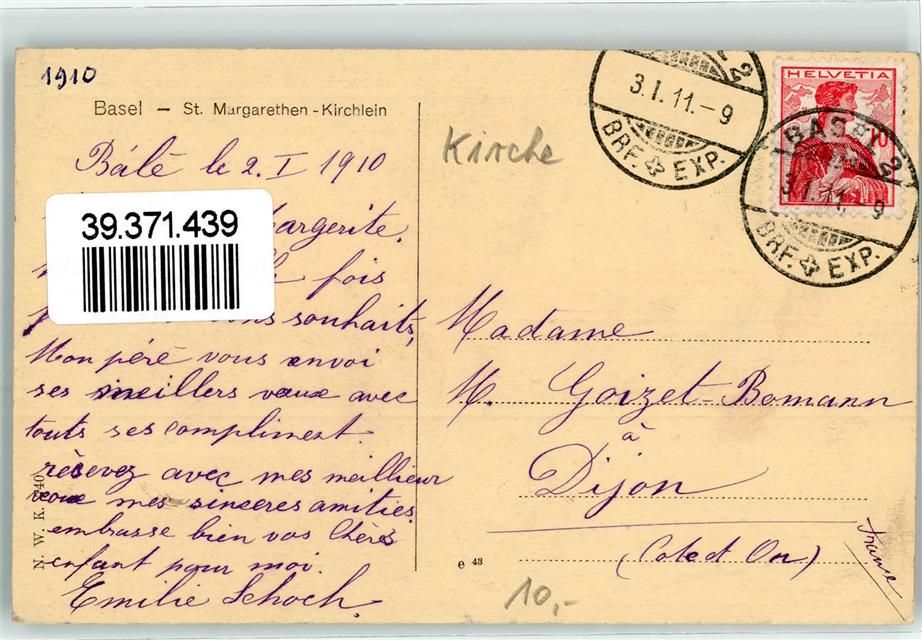 1910
Basel – St. Margarethen-Kirchlein
Bâlé le 2. I 1910
39.371.439
argerite.
fois
souhaits,
Mon péré vous envoi
ses meillers vœux avec
touts ses compliment.
récevez avec mes meillieur
voux mes sinceres amitiés.
embrasse bien vos Chérs
enfant pour moi.
Emilie Schoch.
N. W. K.
Kirche
2
3.I.11.-9
BRF. EXP.
HELVETIA
10
BASEL 2
3.I.11.-9
BRF. EXP.
Madame
M. Goizet-Bomann
à
Dijon
(Cote d'Or)
France
e 43
10,-